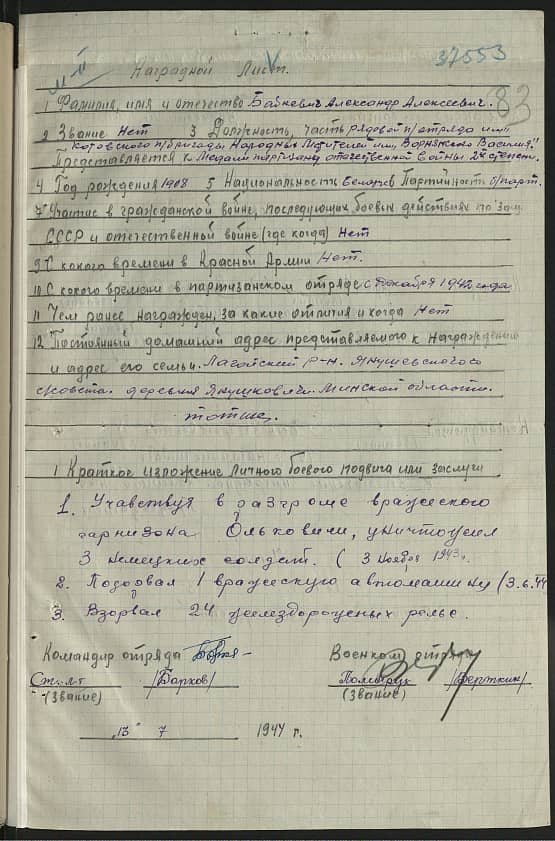 37553
Наградной Лист.
83
1 Фамилия, имя и отечество Байкевич Александр Алексеевич.
2 Звание Нет 3 Должность, часть рядовой п/отряда им
Котовского п/бригады Народные Мстители им. Воронянского Василия."
Представляется к Медали партизана отечественной войны 2й степени.
4 Год рождения 1908 5 Национальность Беларус Партийность б/парт.
7 Участие в гражданской войне, последующих боевых действиях по защ.
СССР и отечественной войне (где когда) Нет
9 С какого времени в Красной Армии Нет.
10 С какого времени в партизанском отряде с декабря 1942 года
11 Чем ранее награжден, за какие отличия и когда Нет
12 Постоянный домашний адрес представляемого к награждению
и адрес его семьи. Лагойский р-н. Янушевского
с/совета. деревня Янушковичи. Минской области.
тот же.
1 Краткое изложение личного боевого подвига или заслуги
1. Учавствуя в разгроме вражеского
гарнизона Ольковичи, уничтожил
3 немецких солдат. (3 ноября 1943г.
2. Подорвал 1 вражескую автомашину (3.6.44
3. Взорвал 24 железнодорожных рельс.
Командир отряда Военком отряда
Ст. л-т /Барков/ Политрук /Верткин/
(Звание) (Звание)
"13" 7 1944 г.